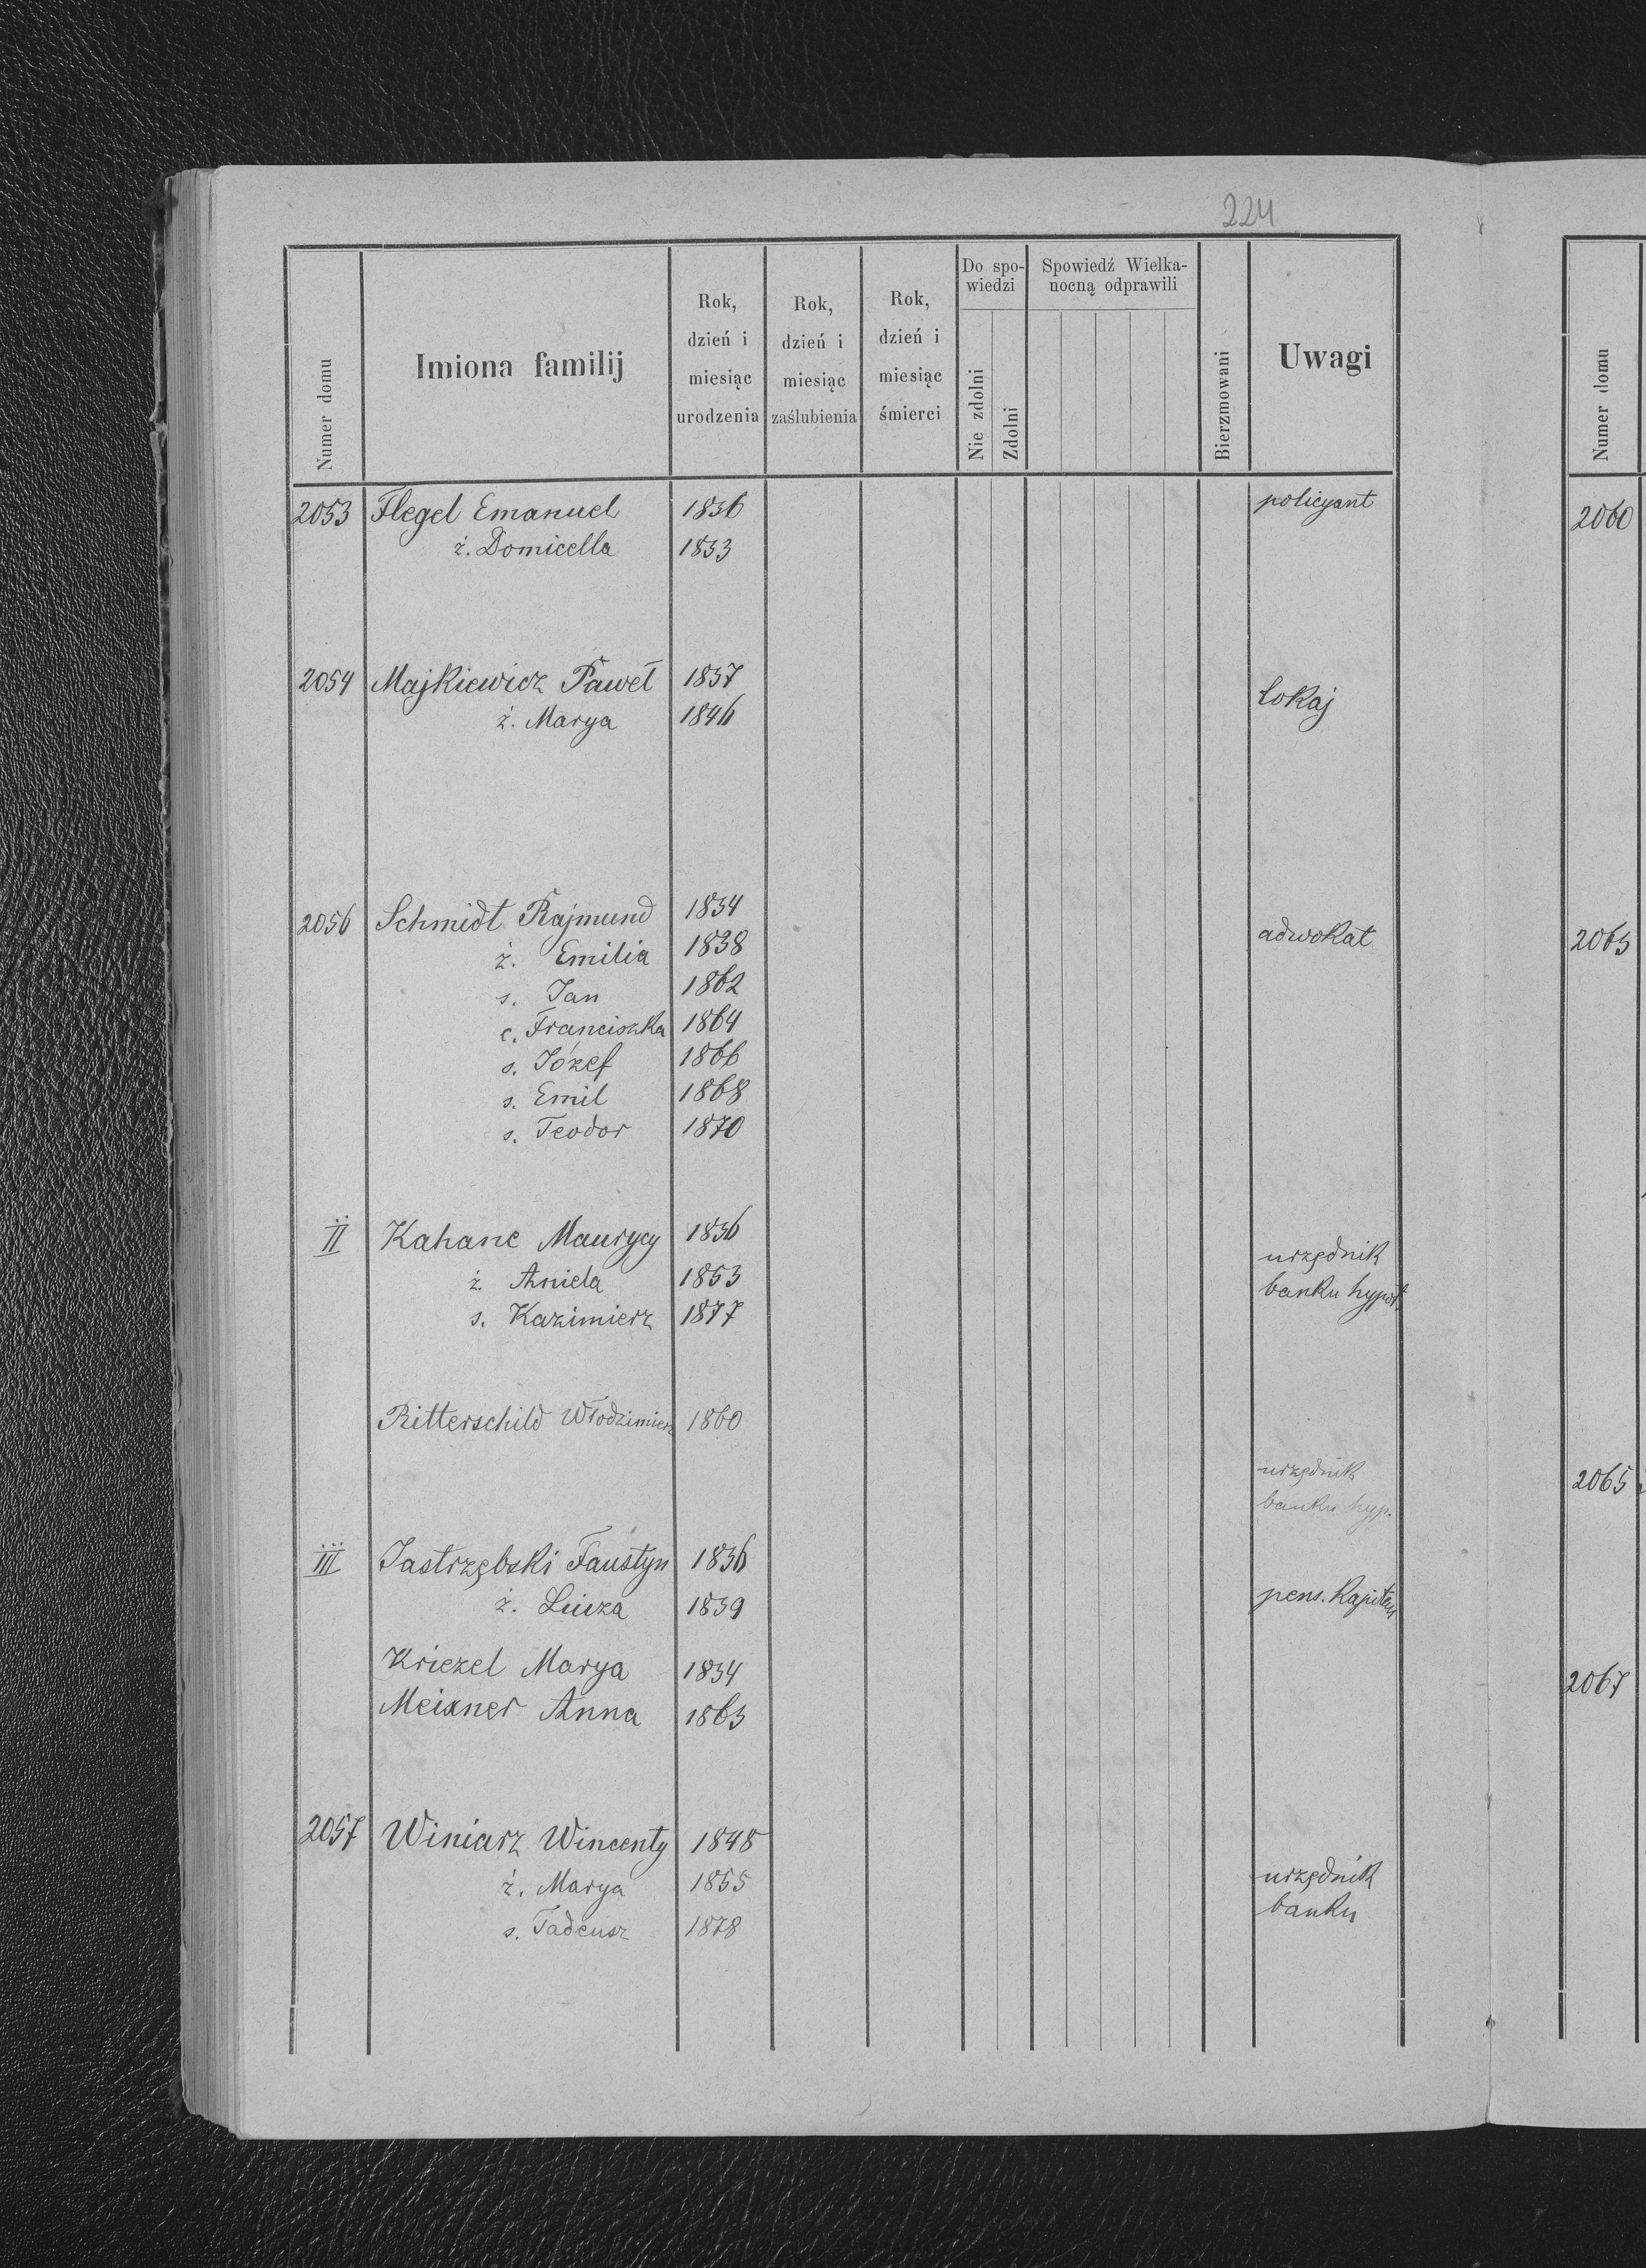 224
Numer domu
Imiona familij
Rok, dzień i miesiąc urodzenia
Rok, dzień i miesiąc zaślubienia
Rok, dzień i miesiąc śmierci
Do spo-
wiedzi
Nie zdolni
Zdolni
Spowiedź Wielka-
nocną odprawili
Bierzmowani
Uwagi
Numer domu
2053 Flegel Emanuel 1836 policyant
ż. Domicella 1833
2054 Majkiewicz Paweł 1837
ż. Marya 1846 lokaj
2056 Schmidt Rajmund 1834
ż. Emilia 1838 adwokat
s. Jan 1862
c. Franciszka 1864
s. Józef 1866
s. Emil 1868
s. Teodor 1870
II Kahane Maurycy 1836 urzędnik
ż. Aniela 1853 banku hypot.
s. Kazimierz 1877
Ritterschild Włodzimierz 1860
urzędnik
banku hyp.
III Jastrzębski Faustyn 1836
ż. Luiza 1839 pens. kapitan
Kriezel Marya 1834
Meixner Anna 1863
2057 Winiarz Wincenty 1848
ż. Marya 1855 urzędnik
s. Tadeusz 1878 banku
2060
2063
2065
2067